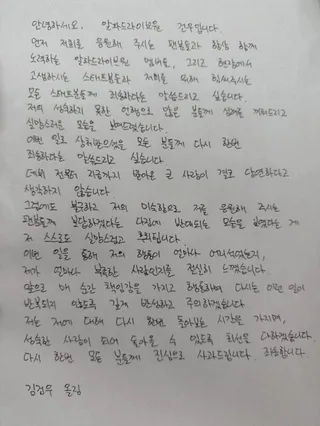 안녕하세요, 알파드라이브원 건우입니다.
먼저 저희를 응원해 주시는 팬분들과 항상 함께
노력하는 알파드라이브원 멤버들, 그리고 현장에서
고생하시는 스태프분들과 저희를 위해 힘써주시는
모든 스태프분들께 죄송하다는 말씀드리고 싶습니다.
저의 성숙하지 못한 언행으로 많은 분들께 실례를 끼쳐드리고
실망스러운 모습을 보여드렸습니다.
이번 일로 상처받으셨을 모든 분들께 다시 한번
죄송하다는 말씀드리고 싶습니다
데뷔 전부터 지금까지 받아온 큰 사랑이 결코 당연하다고
생각하지 않습니다
그럼에도 불구하고 저의 미숙함으로 저를 응원해 주시는
팬분들께 보답하겠다는 다짐에 반대되는 모습을 보였다는 게
저 스스로도 실망스럽고 후회됩니다
이번 일을 통해 저의 행동이 얼마나 어리석었는지,
제가 얼마나 부족한 사람인지를 절실히 느꼈습니다.
앞으로 매 순간 책임감을 가지고 행동하며 다시는 이런 일이
반복되지 않도록 깊게 반성하고 주의하겠습니다
저는 저에 대해 다시 한번 돌아보는 시간을 가지며,
성숙한 사람이 되어 돌아올 수 있도록 최선을 다하겠습니다.
다시 한번 모든 분들께 진심으로 사과드립니다. 죄송합니다.
김건우 올림